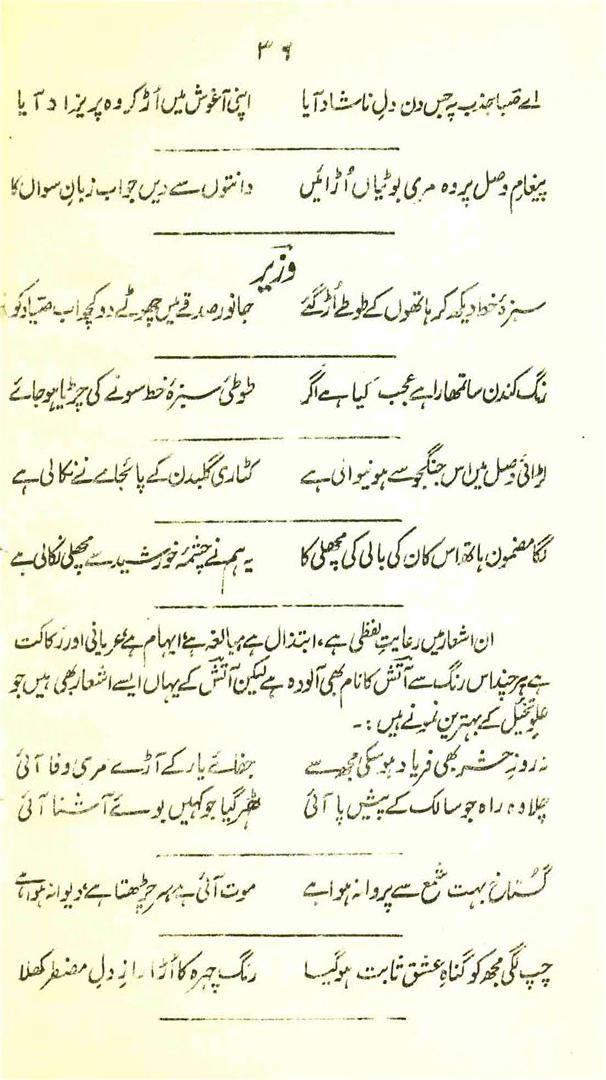 ۳۶
اے صبا جذب پہ جس دن دلِ ناشاد آیا اپنی آغوش میں اُڑ کر وہ پریزاد آیا
پیغامِ وصل پر وہ مری بوٹیاں اُڑائیں دانتوں سے دیں جواب زبانِ سوال کا
وزیر
سبزۂ خط دیکھ کر ہاتھوں کے طوطے اُڑ گئے جانور صدقے میں چھوٹے دو کچھ اب صیّاد کو
رنگ کندن سا تمھارا ہے عجب کیا ہے اگر طوطیٔ سبزۂ خط سونے کی چڑیا ہو جائے
لڑائی وصل میں اس جنگجو سے ہونیوالی ہے کٹاری گلبدن کے پائجامے نے نکالی ہے
لگا مضمون ہاتھ اس کان کی بالی کی مچھلی کا یہ ہم نے چشمۂ خورشید سے مچھلی نکالی ہے
ان اشعار میں رعایتِ لفظی ہے، ابتذال ہے، مبالغہ ہے، ایہام ہے، عریانی اور رکاکت
ہے ہر چند اس رنگ سے آتش کا نام بھی آلودہ ہے لیکن آتش کے یہاں ایسے اشعار بھی ہیں جو
علوِ تخیل کے بہترین نمونے ہیں :۔
نہ روزِ حشر بھی فریاد ہو سکی مجھ سے جفائے یار کے آڑے مری وفا آئی
چلا وہ راہ جو سالک کے پیش پا آئی ٹھہر گیا جو کہیں بوئے آشنا آئی
گستاخ بہت شمع سے پروانہ ہوا ہے موت آئی ہے سر چڑھتا ہے، دیوانہ ہوا ہے
چپ لگی مجھ کو گناہِ عشق ثابت ہو گیا رنگ چہرہ کا اُڑا رازِ دلِ مضطر کھلا